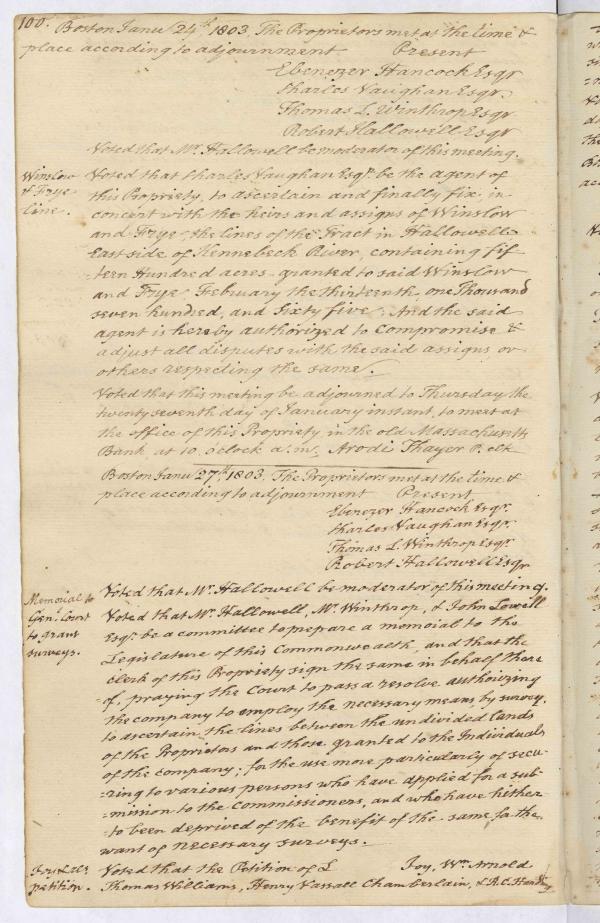 100. Boston Janu 24th 1803, The Proprietors met at the time &
place according to adjournment Present
Ebenezer Hancock Esqr
Charles Vaughan Esqr.
Thomas L. Winthrop Esqr
Robert Hallowell Esqr
Voted that Mr. Hallowell be moderator of this meeting.
Winslow
& Frye
line.
Voted that Charles Vaughan Esqr. be the agent of
this Propriety, to ascertain and finally fix, in
concert with the heirs and assigns of Winslow
and Frye, the lines of the Tract in Hallowell
East side of Kennebeck River, containing fif
teen Hundred acres granted to said Winslow
and Frye February the thirteenth, one Thousand
seven hundred, and Sixty five; And the said
agent is hereby authorized to compromise &
adjust all disputes with the said assigns or
others respecting the same.
Voted that this meeting be adjourned to Thursday the
twenty seventh day of January instant, to meet at
the office of this Propriety in the old Massachusetts
Bank, at 10, oclock a.m. Arodi Thayer P. clk
Boston Janu 27th 1803. The Proprietors met at the time &
place according to adjournment Present
Ebenezer Hancock Esqr.
Charles Vaughan Esqr.
Thomas L Winthrop Esqr.
Robert Hallowell Esqr
Voted that Mr. Hallowell be moderator of this meeting.
Memoial to
Genl. Court
to grant
surveys.
Voted that Mr. Hallowell, Mr. Winthrop, & John Lowell
Esqr. be a committee to prepare a memoial to the
Legislature of this Commonwealth, and that the
clerk of this Propriety sign the same in behalf there
of, praying the Court to pass a resolve authorizing
the company to employ the necessary means, by survey,
to ascertain the lines between the undivided lands
of the Proprietors and those granted to the Individuals
of the company; for the use more particularly of secu-
=ring to various persons who have applied for a sub-
=mission to the Commissioners, and who have hither
=to been deprived of the benefit of the same for the
want of necessary surveys.
Joy & als
petition.
Voted that the Petition of L Joy, Wm. Arnold
Thomas Williams, Henry Vassall Chamberlain, & R. C.